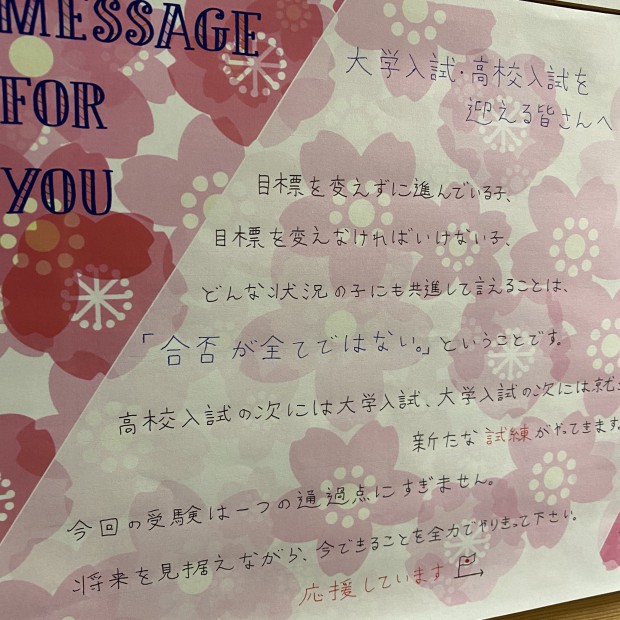 MESSAGE
FOR
YOU
大学入試・高校入試を
迎える皆さんへ
目標を変えずに進んでいる子、
目標を変えなければいけない子、
どんな状況の子にも共通して言えることは、
「合否が全てではない。」ということです。
高校入試の次には大学入試、大学入試の次には就
新たな試練がやってきます
今回の受験は一つの通過点にすぎません。
将来を見据えながら、今できることを全力でやりきって下さい。
応援しています